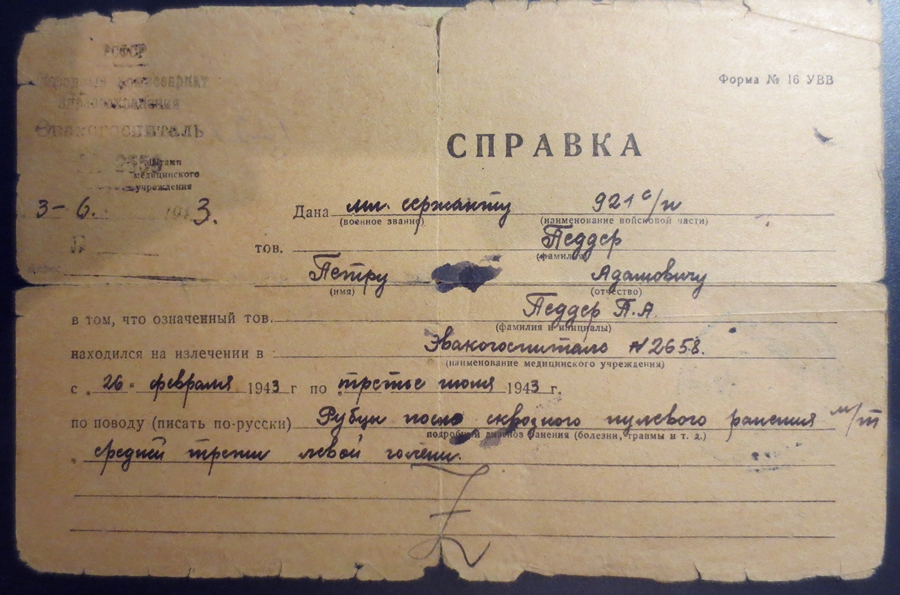 РСФСР
Народный комиссариат
здравоохранения
Эвакогоспиталь
Штамп
медицинского
учреждения
3-6. 1943.
Форма № 16 УВВ
СПРАВКА
Дана мл. сержанту 921 с/п
(военное звание) (наименование войсковой части)
тов. Педдер
(фамилия)
Петру Адамовичу
(имя) (отчество)
в том, что означенный тов. Педдер П.А.
(фамилия и инициалы)
находился на излечении в Эвакогоспитале № 2658.
(наименование медицинского учреждения)
с „26“ февраля 1943 г по третье июня 1943 г.
по поводу (писать по-русски) Рубцы после сквозного пулевого ранения м/т
подробный диагноз ранения (болезни, травмы и т. д.)
средней трети левой голени.